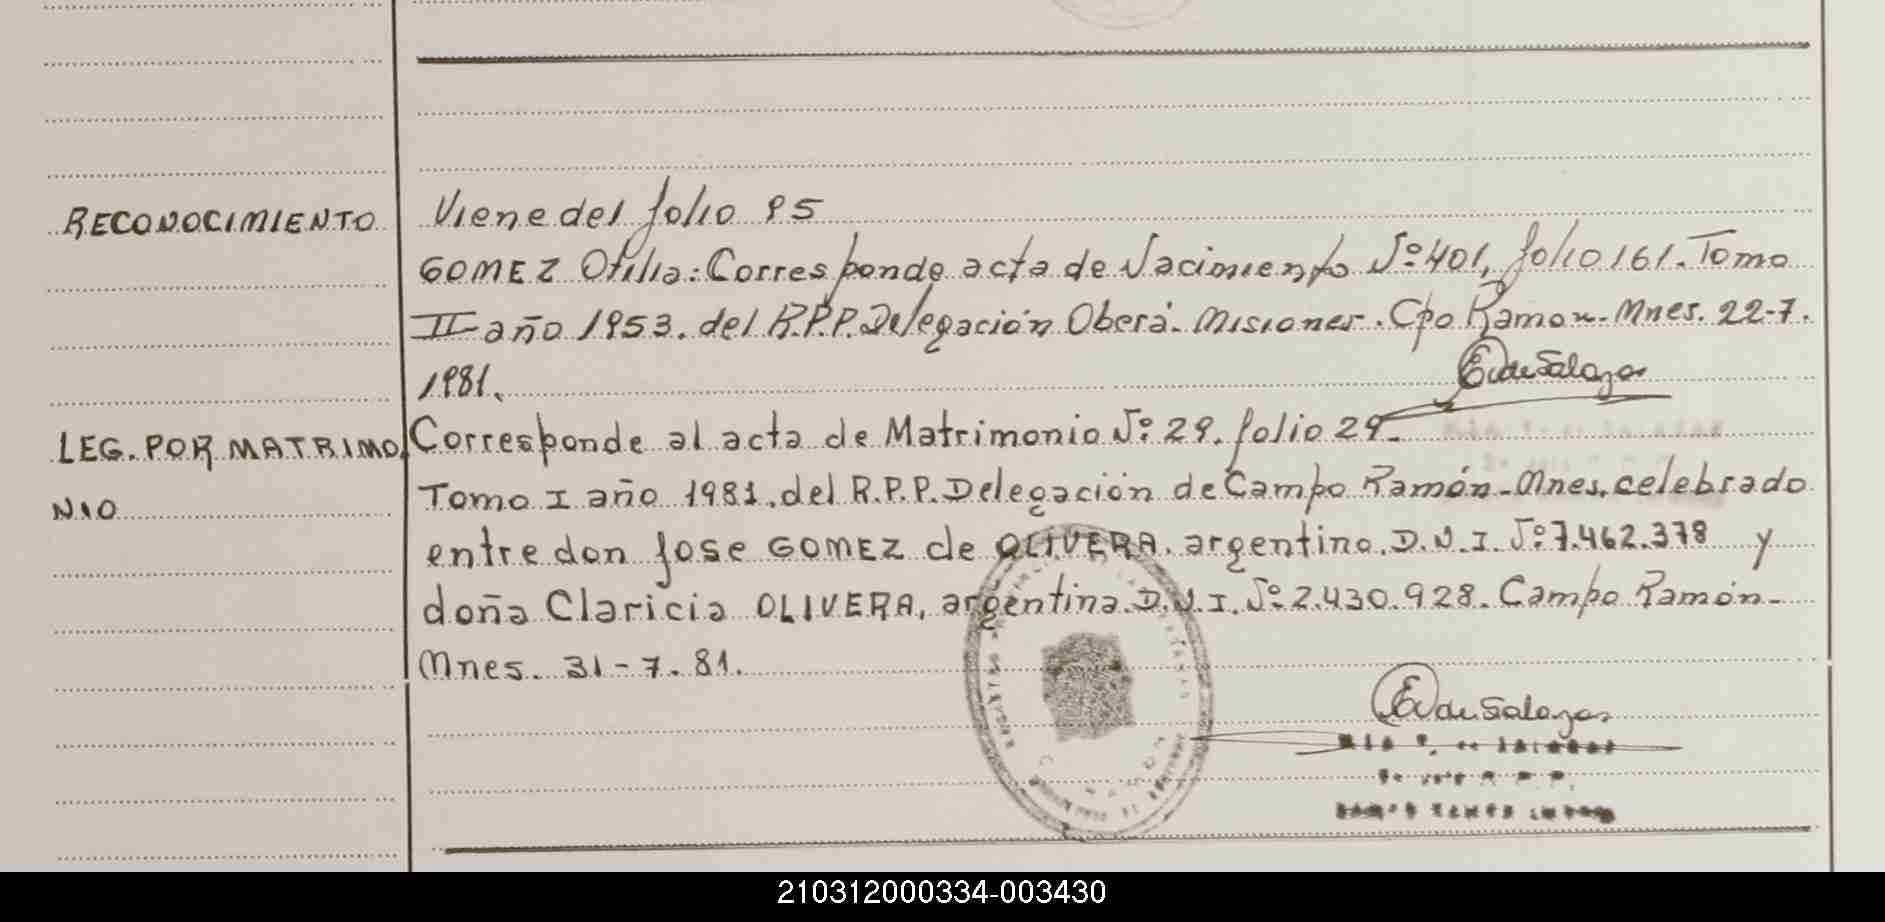 RECONOCIMIENTO
Viene del folio 95
GOMEZ Otilia: Corresponde acta de Nacimiento Nº 401, folio 161. Tomo
II año 1953. del R.P.P. Delegación Oberá. Misiones. Cpo Ramon. Mnes. 22-7.
1981.
E V de Salazar
LEG. POR MATRIMO
NIO
Corresponde al acta de Matrimonio Nº 29. folio 29.
Tomo I año 1981. del R.P.P. Delegación de Campo Ramón. Mnes. celebrado
entre don Jose GOMEZ de OLIVERA. argentino. D.N.I. Nº 7.462.378 y
doña Claricia OLIVERA, argentina. D.N.I. Nº 2.430.928. Campo Ramón.
Mnes. 31-7.81.
E V de Salazar
210312000334-003430